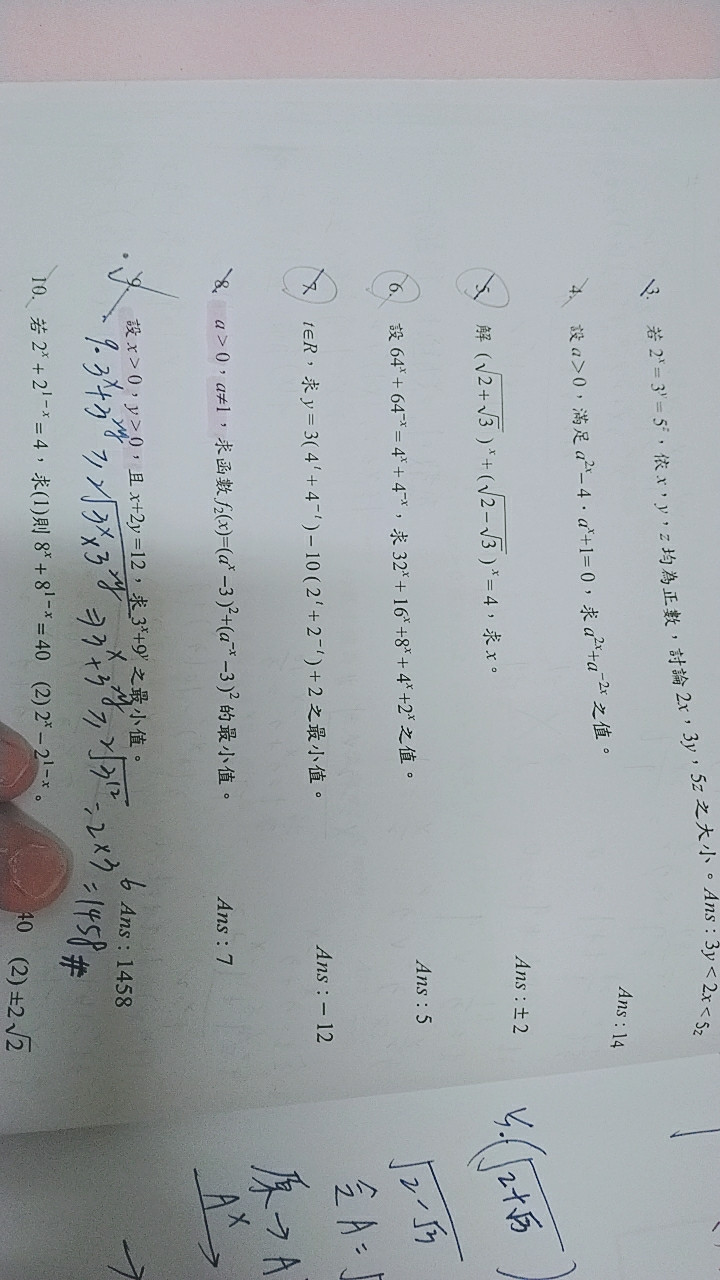 3. 若 2^x = 3^y = 5^z，依 x，y，z 均為正數，討論 2x，3y，5z 之大小。Ans : 3y < 2x < 5z
4. 設 a>0，滿足 a^{2x} – 4・a^x+1=0，求 a^{2x}+a^{-2x} 之值。 Ans : 14
5. 解 (√(2+√3))^x+(√(2–√3))^x = 4，求 x。 Ans : ±2
6. 設 64^x + 64^{-x} = 4^x + 4^{-x}，求 32^x + 16^x +8^x + 4^x +2^x 之值。 Ans : 5
7. t∈R，求 y = 3(4^t + 4^{-t}) – 10(2^t + 2^{-t}) + 2 之最小值。 Ans : – 12
8. a > 0，a≠1，求函數 f_2(x)=(a^x –3)^2+(a^{-x} –3)^2 的最小值。 Ans : 7
9. 設 x > 0，y > 0，且 x+2y =12，求 3^x+9^y 之最小值。 Ans : 1458
9. 3^x + 3^{2y} ≥ 2√(3^x × 3^{2y}) ⇒ 3^x + 3^{2y} ≥ 2√(3^{12}) = 2×3^6 = 1458 #
10. 若 2^x + 2^{1–x} = 4，求(1)則 8^x + 8^{1–x} = 40 (2) 2^x – 2^{1–x}。 40 (2) ±2√2
5. (√(2+√3))
√(2-√3)
令 A = √
原 → A
A^x